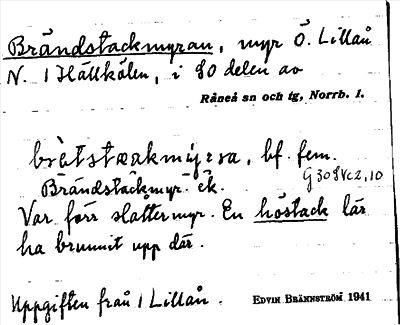 Brändstackmyran, myr Ö. Lillån
N. i Hällkölen, i SO delen av
Råneå sn och tg, Norrb. l.
brètstœakmỳrsa, bf. fem.
G 3098c2,10
Brändstäckmyr. ek.
Var förr slåttermyr. En höstack lär
ha brunnit upp där.
Uppgiften från i Lillån. EDVIN BRÄNNSTRÖM 1941